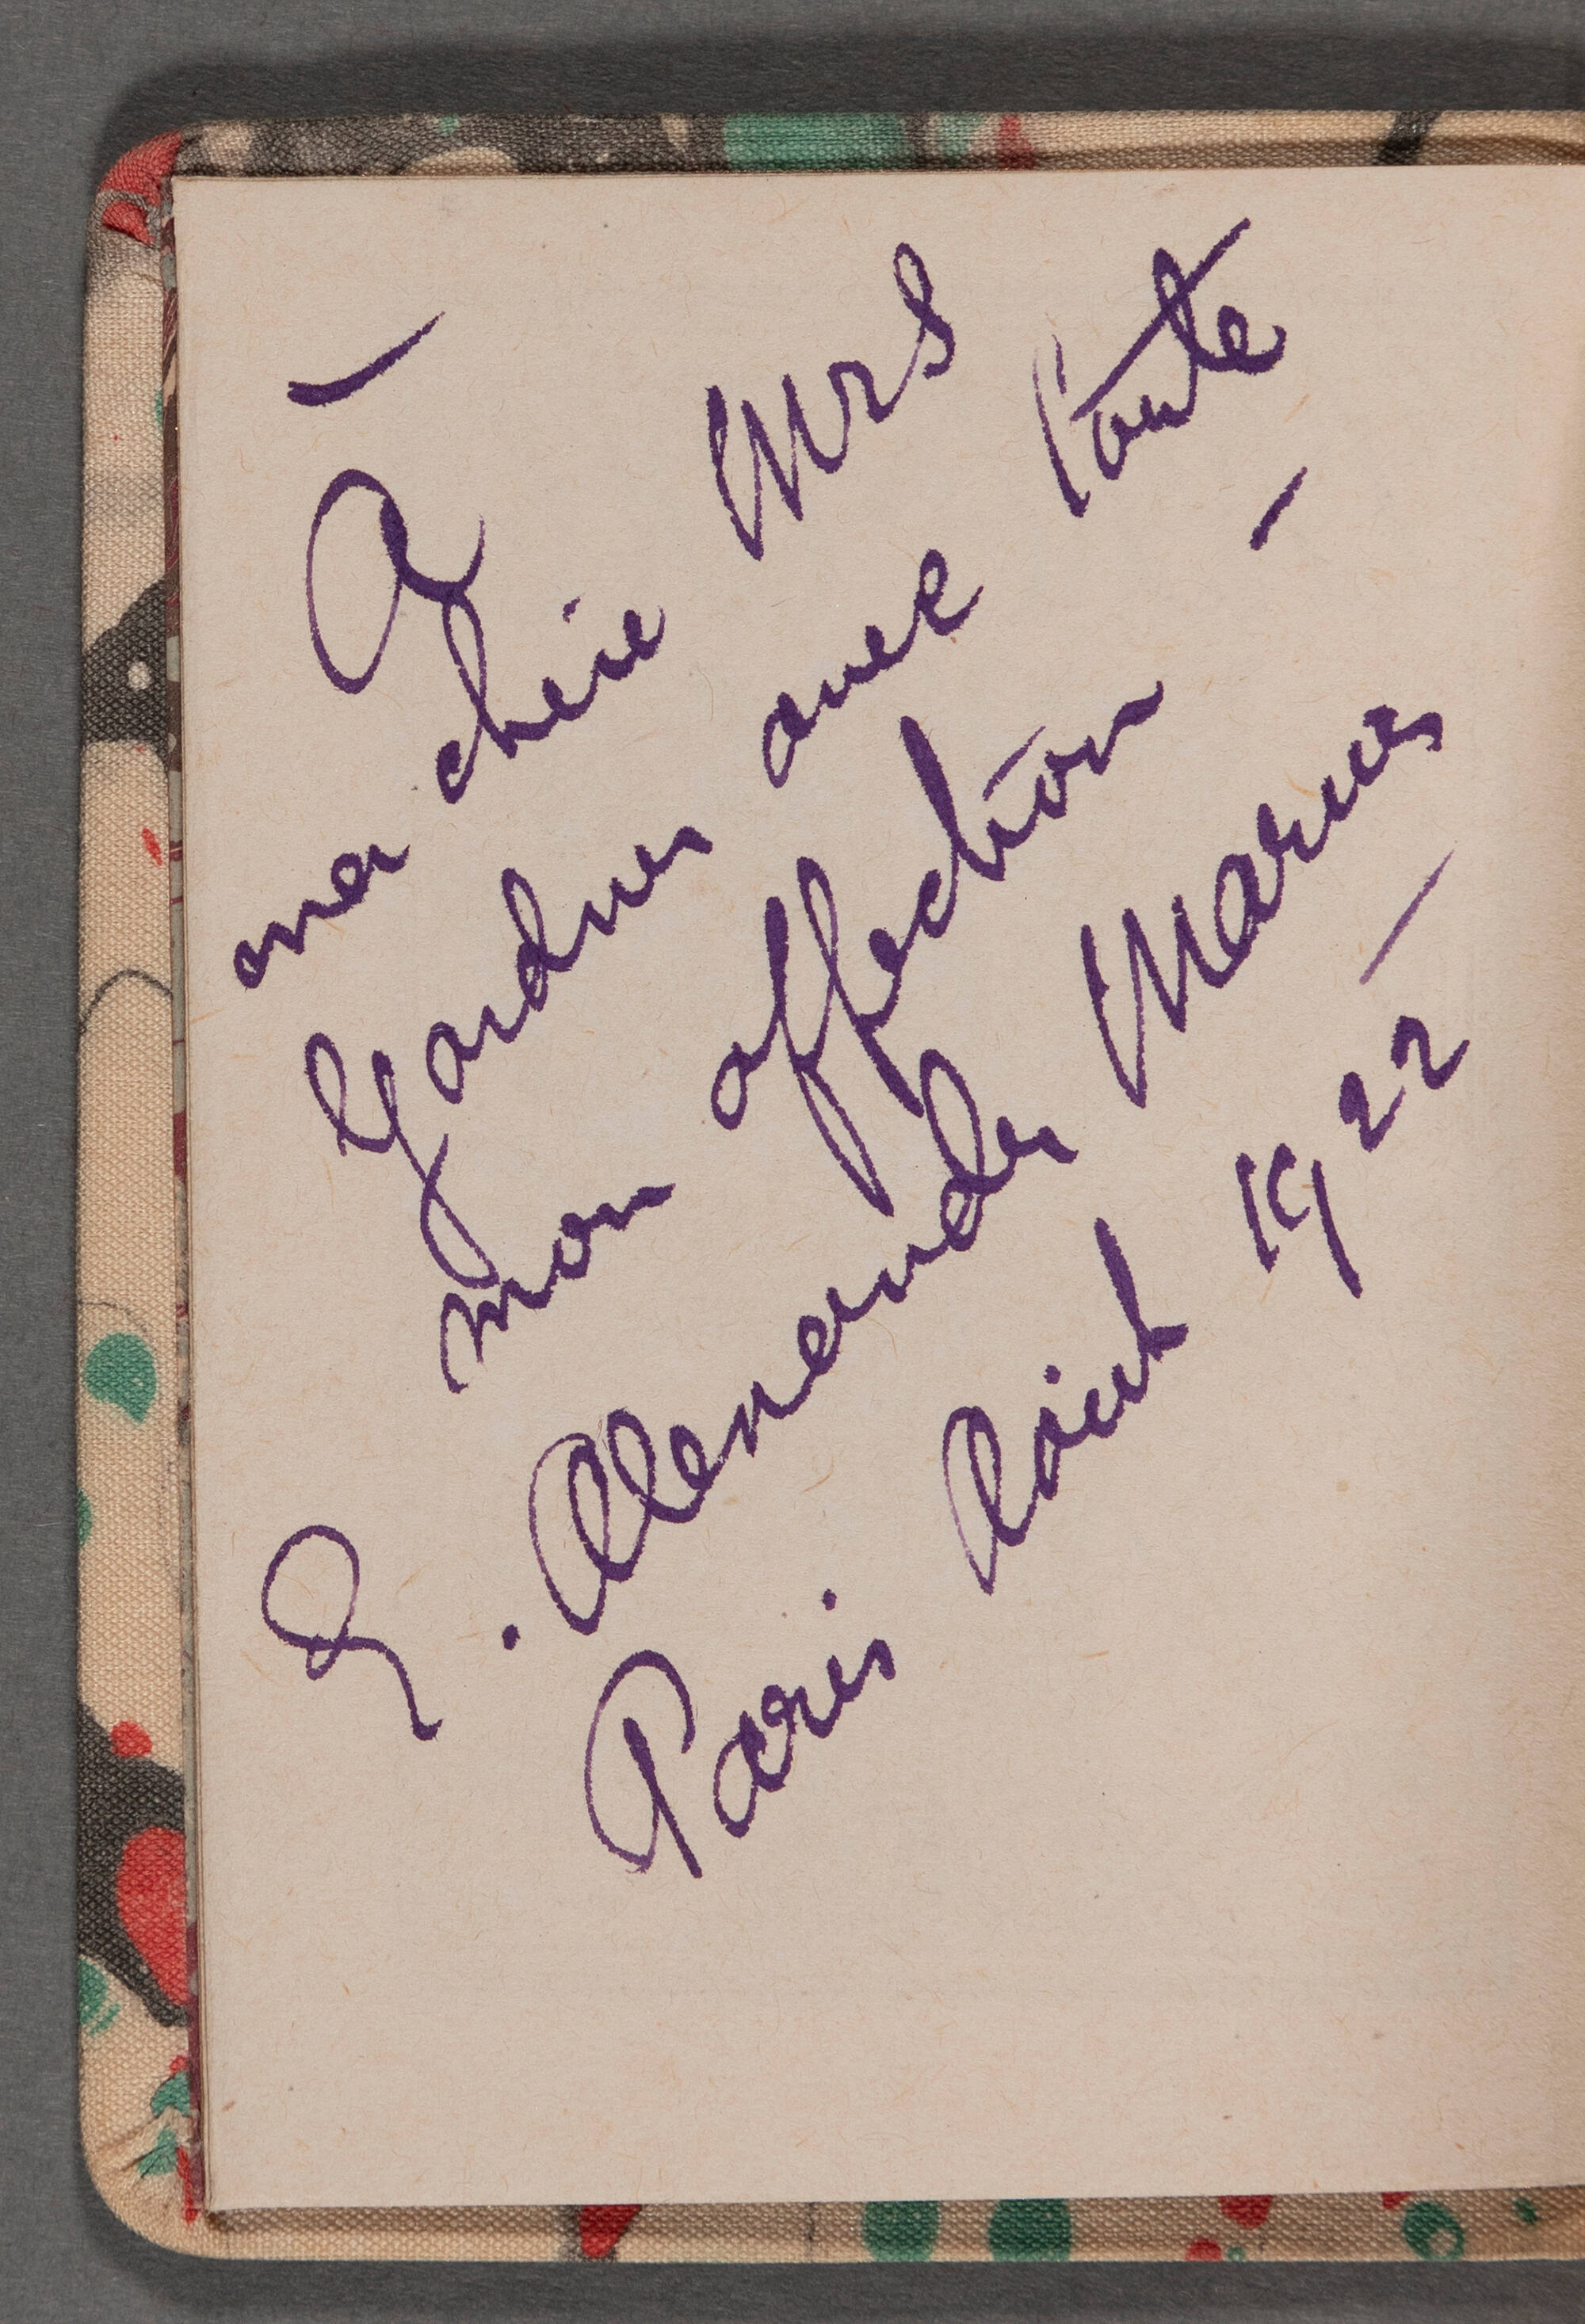 À
ma chère Mrs
Gardner avec toute
mon affection –
Alexander Marius
Paris Août 1922 –